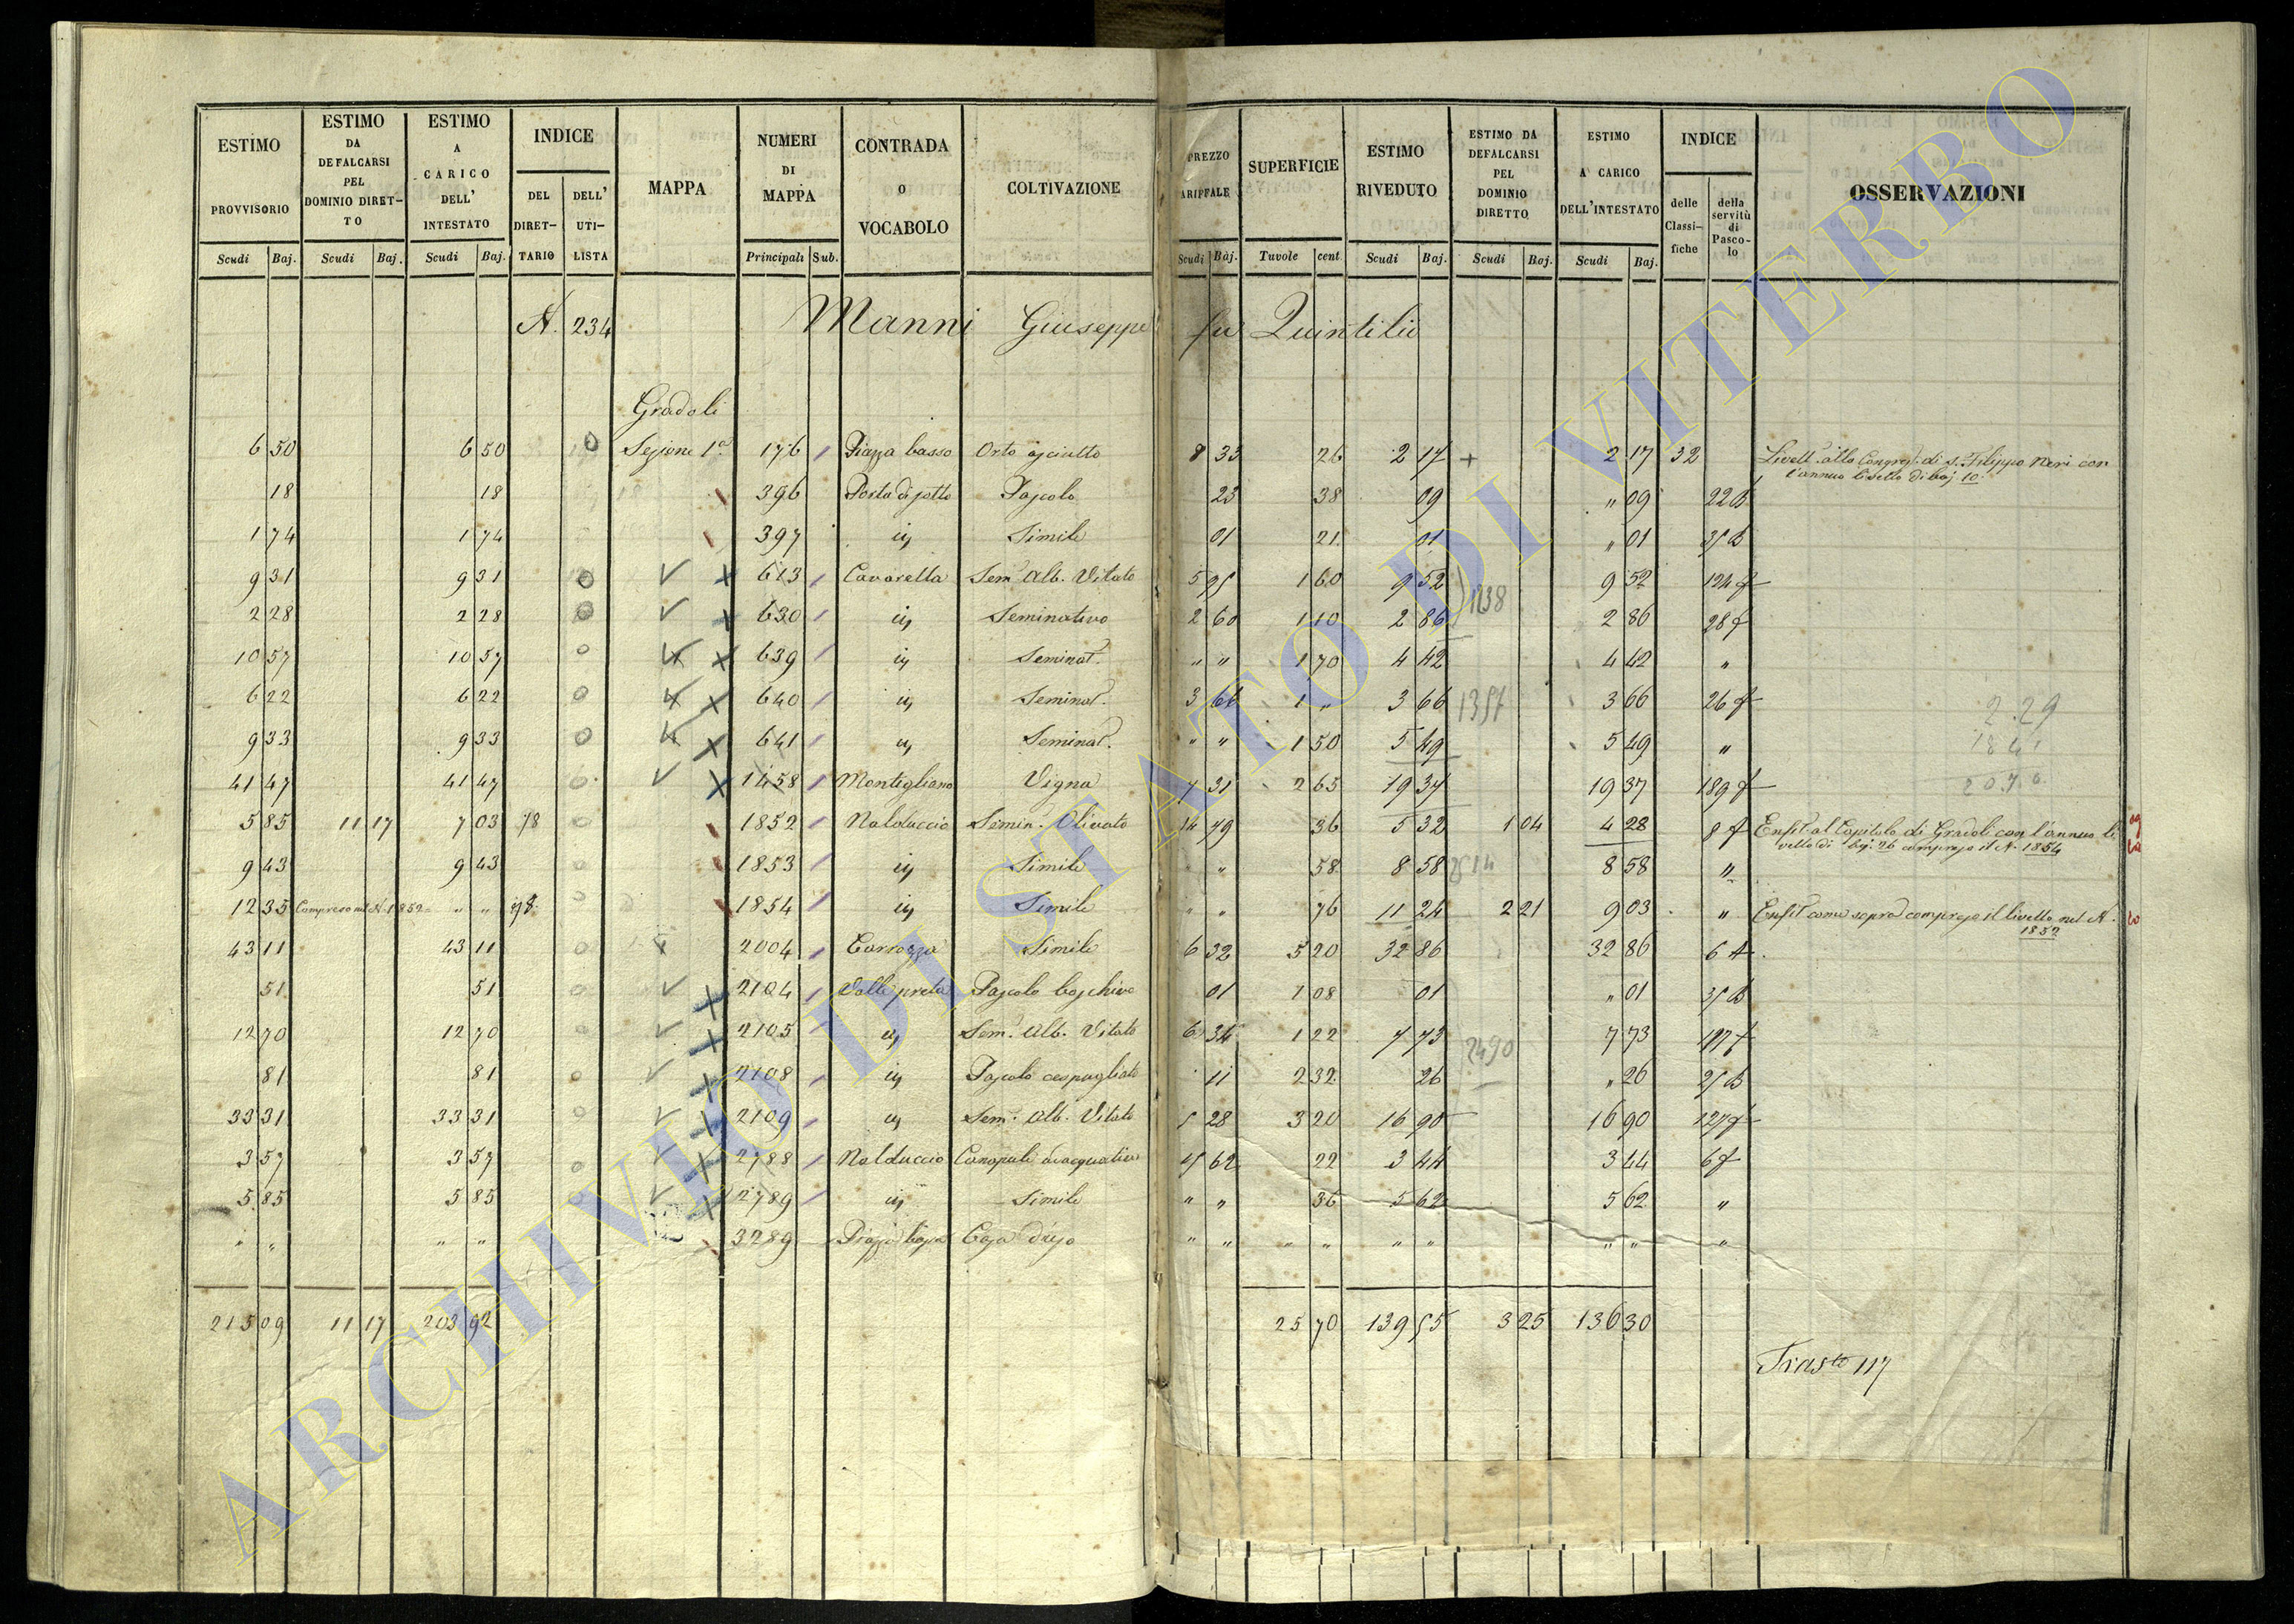 ESTIMO PROVVISORIO | ESTIMO DA DEFALCARSI PEL DOMINIO DIRET-TO | ESTIMO A CARICO DELL' INTESTATO | INDICE | MAPPA | NUMERI DI MAPPA | CONTRADA O VOCABOLO | COLTIVAZIONE | PREZZO ARIFFALE | SUPERFICIE | ESTIMO RIVEDUTO | ESTIMO DA DEFALCARSI PEL DOMINIO DIRETTO | ESTIMO A CARICO DELL'INTESTATO | INDICE | OSSERVAZIONI
DEL DIRET-TARIO | DELL' UTI-LISTA | delle Classi-fiche | della servitù di Pasco-lo
Scudi | Baj. | Scudi | Baj. | Scudi | Baj. | Principali | Sub. | Scudi | Bàj. | Tavole | cent. | Scudi | Baj. | Scudi | Baj. | Scudi | Baj.
N. 234 Manni Giuseppe fu Quintilio
Gradoli
6 50 | 6 50 | Sezione 1a | 176 | Piazza basso | Orto asciutto | 8 33 | 26 | 2 17 + | 2 17 | 32 | Livell. alla Congreg. di S. Filippo Neri con
l'annuo livello di baj. 10.
18 | 18 | 396 | Porta di sotto | Pascolo | 23 | 38 | 09 | " 09 | 22 B
1 74 | 1 74 | 397 | id | Simile | 01 | 21 | 01 | " 01 | 35 B
9 31 | 9 31 | 613 | Cavaretta | Sem. Alb. Vitato | 5 95 | 1 60 | 9 52 | 1138 | 9 52 | 124 f
2 28 | 2 28 | 630 | id | Seminativo | 2 60 | 1 10 | 2 86 | 2 86 | 28 f
10 57 | 10 57 | 639 | id | Seminat. | " " | 1 70 | 4 42 | 4 42 | "
6 22 | 6 22 | 640 | id | Seminat. | 3 66 | 1 " | 3 66 | 1357 | 3 66 | 26 f | 2.29
9 33 | 9 33 | 641 | id | Seminat. | " " | 1 50 | 5 49 | 5 49 | " | 1841
41 47 | 41 47 | 1458 | Montigliano | Vigna | 7 31 | 2 65 | 19 37 | 19 37 | 189 f
5 85 | 11 17 | 7 03 | 78 | 1852 | Nalduccio | Semin. Olivato | 14 79 | 36 | 5 32 | 1 04 | 4 28 | 8 f | Enfit. al Capitolo di Gradoli con l'annuo li
vello di baj. 26 compreso il N. 1854
9 43 | 9 43 | 1853 | id | Simile | " | 58 | 8 58 | 8 58 | "
12 35 | Compreso nel N. 1852 | " " | 78 | 1854 | id | Simile | " " | 76 | 11 24 | 2 21 | 9 03 | " | Enfit. come sopra compreso il livello nel N.
1852
43 11 | 43 11 | 2004 | Carrozza | Simile | 6 32 | 5 20 | 32 86 | 32 86 | 6 f
51 | 51 | 2104 | Valle preta | Pascolo boschivo | 01 | 1 08 | 01 | " 01 | 35 B
12 70 | 12 70 | 2105 | id | Sem. Alb. Vitato | 6 34 | 1 22 | 7 73 | 2490 | 7 73 | 127 f
81 | 81 | 2108 | id | Pascolo cespugliato | 11 | 2 32 | 26 | " 26 | 25 B
33 31 | 33 31 | 2109 | id | Sem. Alb. Vitato | 5 28 | 3 20 | 16 90 | 16 90 | 127 f
3 57 | 3 57 | 2788 | Nalduccio | Canapuli adacquativo | 15 62 | 22 | 3 44 | 3 44 | 6 f
5 85 | 5 85 | 2789 | id | Simile | " " | 36 | 5 62 | 5 62 | "
" " | " " | 3289 | Piazza bassa | Casa d'uso | " " | " " | " " | " " | "
215 09 | 11 17 | 203 92 | 25 70 | 139 55 | 3 25 | 136 30
Trasto 117
ARCHIVIO DI STATO DI VITERBO